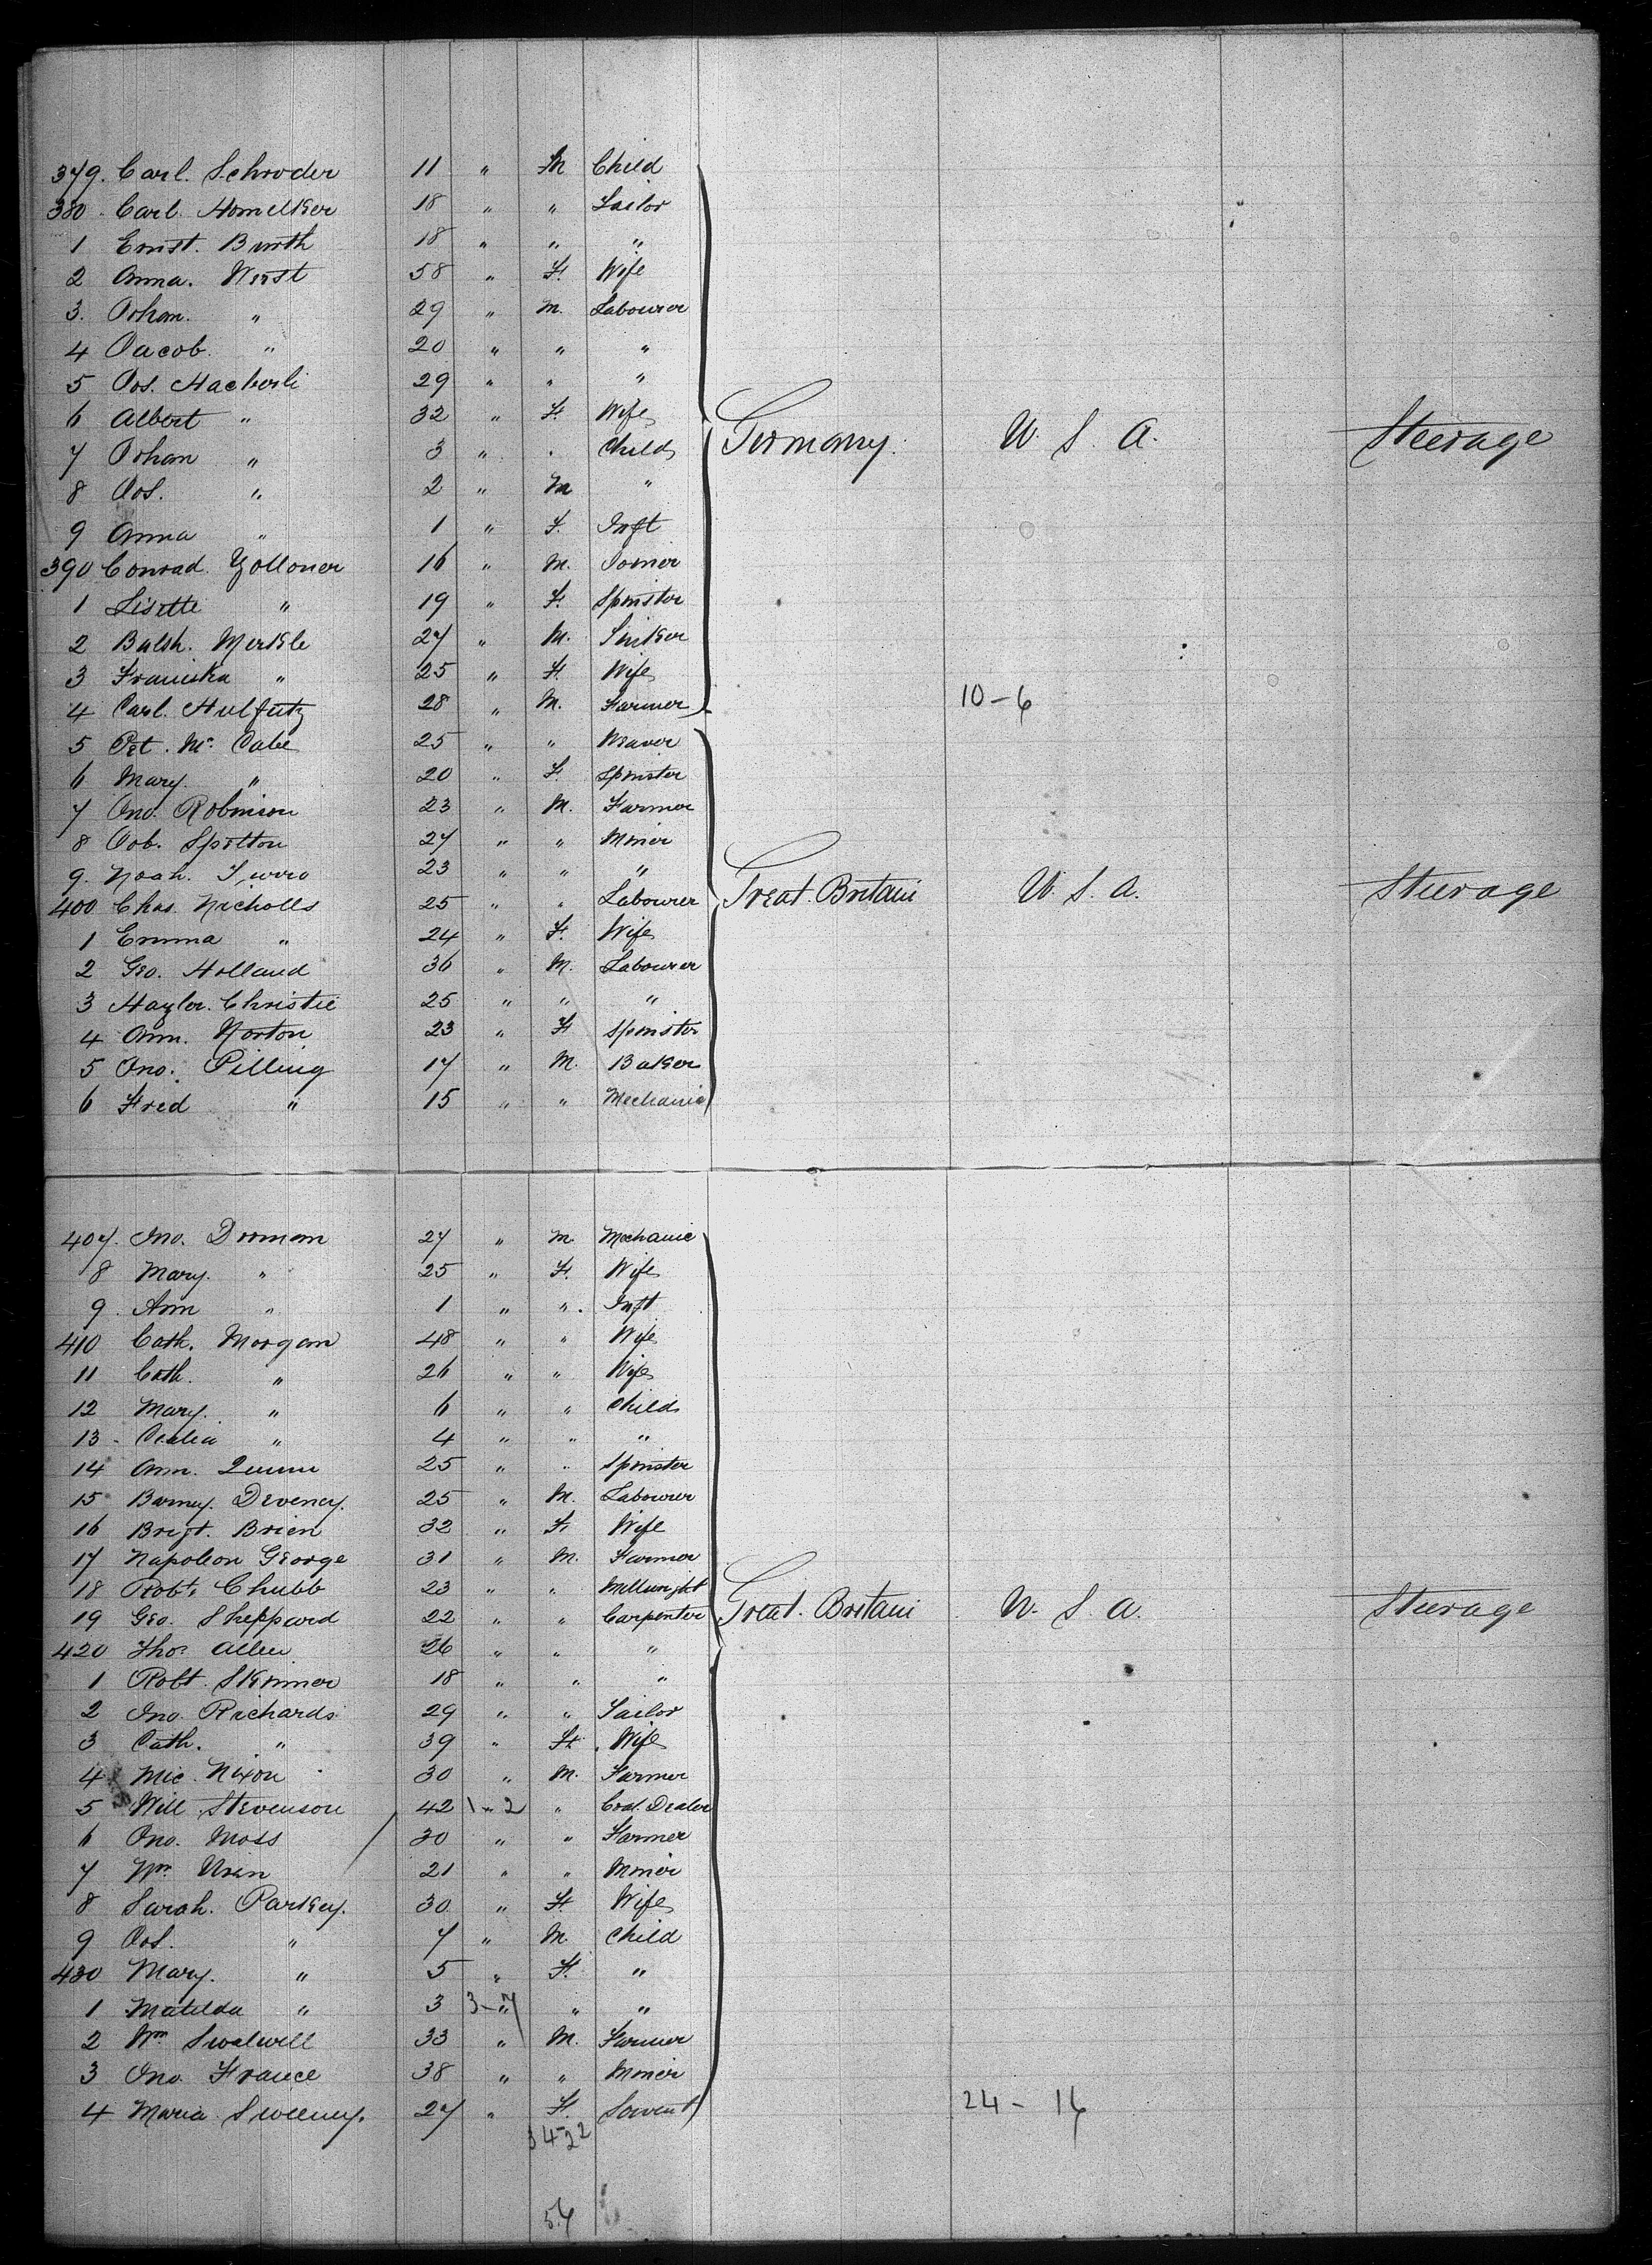 379. Carl. Schroder 11 " M Child
380 Carl. Homelker 18 " " Tailor
1 Ernst. Burth 18 " " "
2 Anna. Werst 58 " F. Wife
3. Johan. " 29 " M. Labourer
4 Jacob. " 20 " " "
5 Jos. Hacherli 29 " " "
6 Albert " 32 " F. Wife
7 Johan " 3 " " Child Germany. U. S. A. Steerage
8 Jos. " 2 " M "
9 Anna " 1 " F. Inft
390 Conrad. Zolloner 16 " M. Joiner
1 Lisette " 19 " F. Spinster
2 Balsh. Merkle 27 " M.
3 Franiska " 25 " F. Wife
4 Carl. Hulfutz 28 " M. Farmer 10-6
5 Pet. Mc. Cabe 25 " " Weaver
6 Mary. " 20 " F. Spinster
7 Jno. Robinson 23 " M. Farmer
8 Job. Spolton 27 " " Miner
9. Noah. 23 " " "
400 Chas. Nicholls 25 " " Labourer Great. Britain U. S. A. Steerage
1 Emma " 24 " F. Wife
2 Geo. Holland 36 " M. Labourer
3 Hayler. Christie 25 " " "
4 Ann. Norton 23 " F Spinster
5 Jno. Pilling 17 " M. Baker
6 Fred " 15 " " Mechanic
407. Jno. Dorman 27 " M. Mechanic
8 Mary. " 25 " F. Wife
9. Ann " 1 " ". Inft
410 Cath. Morgan 48 " " Wife
11 Cath. " 26 " " Wife
12 Mary. " 6 " " Child
13 " 4 " " "
14 Ann. Quinn 25 " " Spinster
15 Barney. Deveney. 25 " M. Labourer
16 Brigt. Brien 32 " F. Wife
17 Napoleon George 31 " M. Farmer
18 Robt. Chubb 23 " " Millwright
19 Geo. Sheppard 22 " " Carpenter Great. Britain U. S. A. Steerage
420 Thos. Allen 26 " " "
1 Robt. Skinner 18 " " "
2 Jno. Richards 29 " " Tailor
3 Cath. " 39 " F. Wife
4 Mic. Nixon 30 " M. Farmer
5 Will Stevenson 42 1-2 " Coal. Dealer
6 Jno. Moss 30 " " Farmer
7 Wm. Uren 21 " " Miner
8 Sarah. Parkey. 30 " F. Wife
9 Jos. " 7 " M. Child
430 Mary. " 5 " F. "
1 Matilda " 3 3-7 " "
2 Wm Swalwell 33 " M. Farmer
3 Jno. France 38 " " Miner
4 Maria Sweeney. 27 " F. Servant 24 - 16
34-22
56